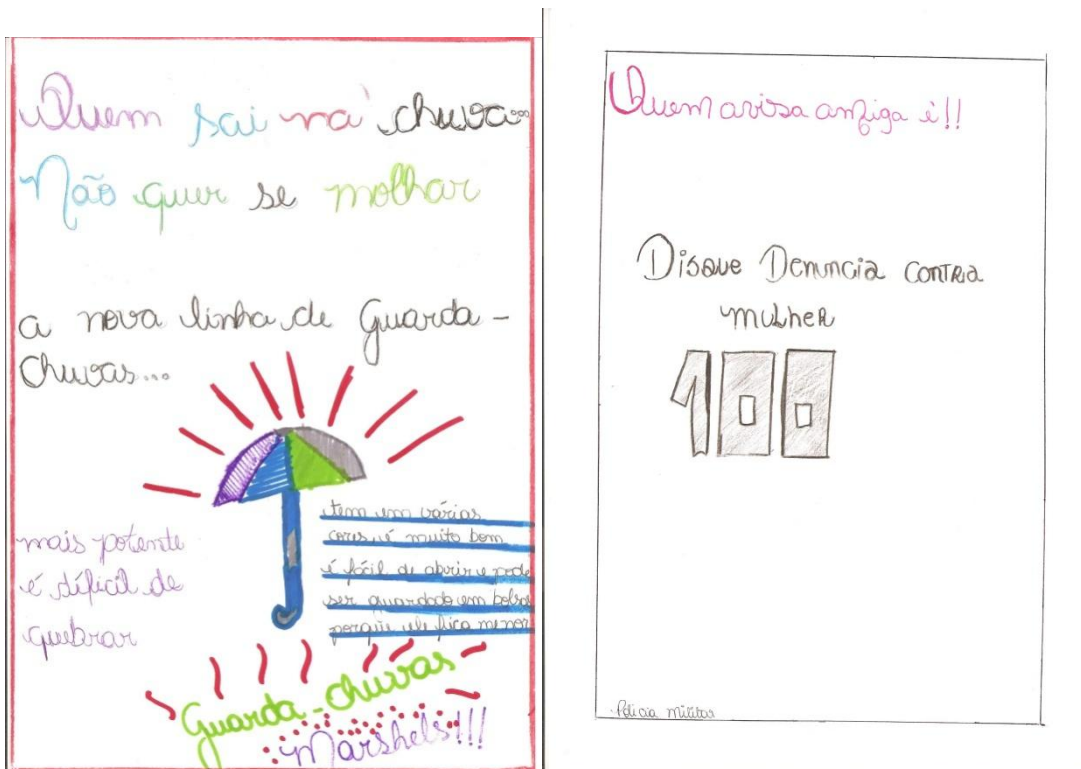 Quem sai na chuva...
Não quer se molhar
a nova linha de Guarda-
Chuvas...
mais potente
é díficil de
quebrar
tem em várias
cores, é muito bom
é fácil de abrir e pode
ser guardado em bolsa
porque ele fica menor
Guarda-chuvas
Marshels!!!
Quem avisa amiga é!!
Disque Denuncia contra
mulher
100
Policia militar